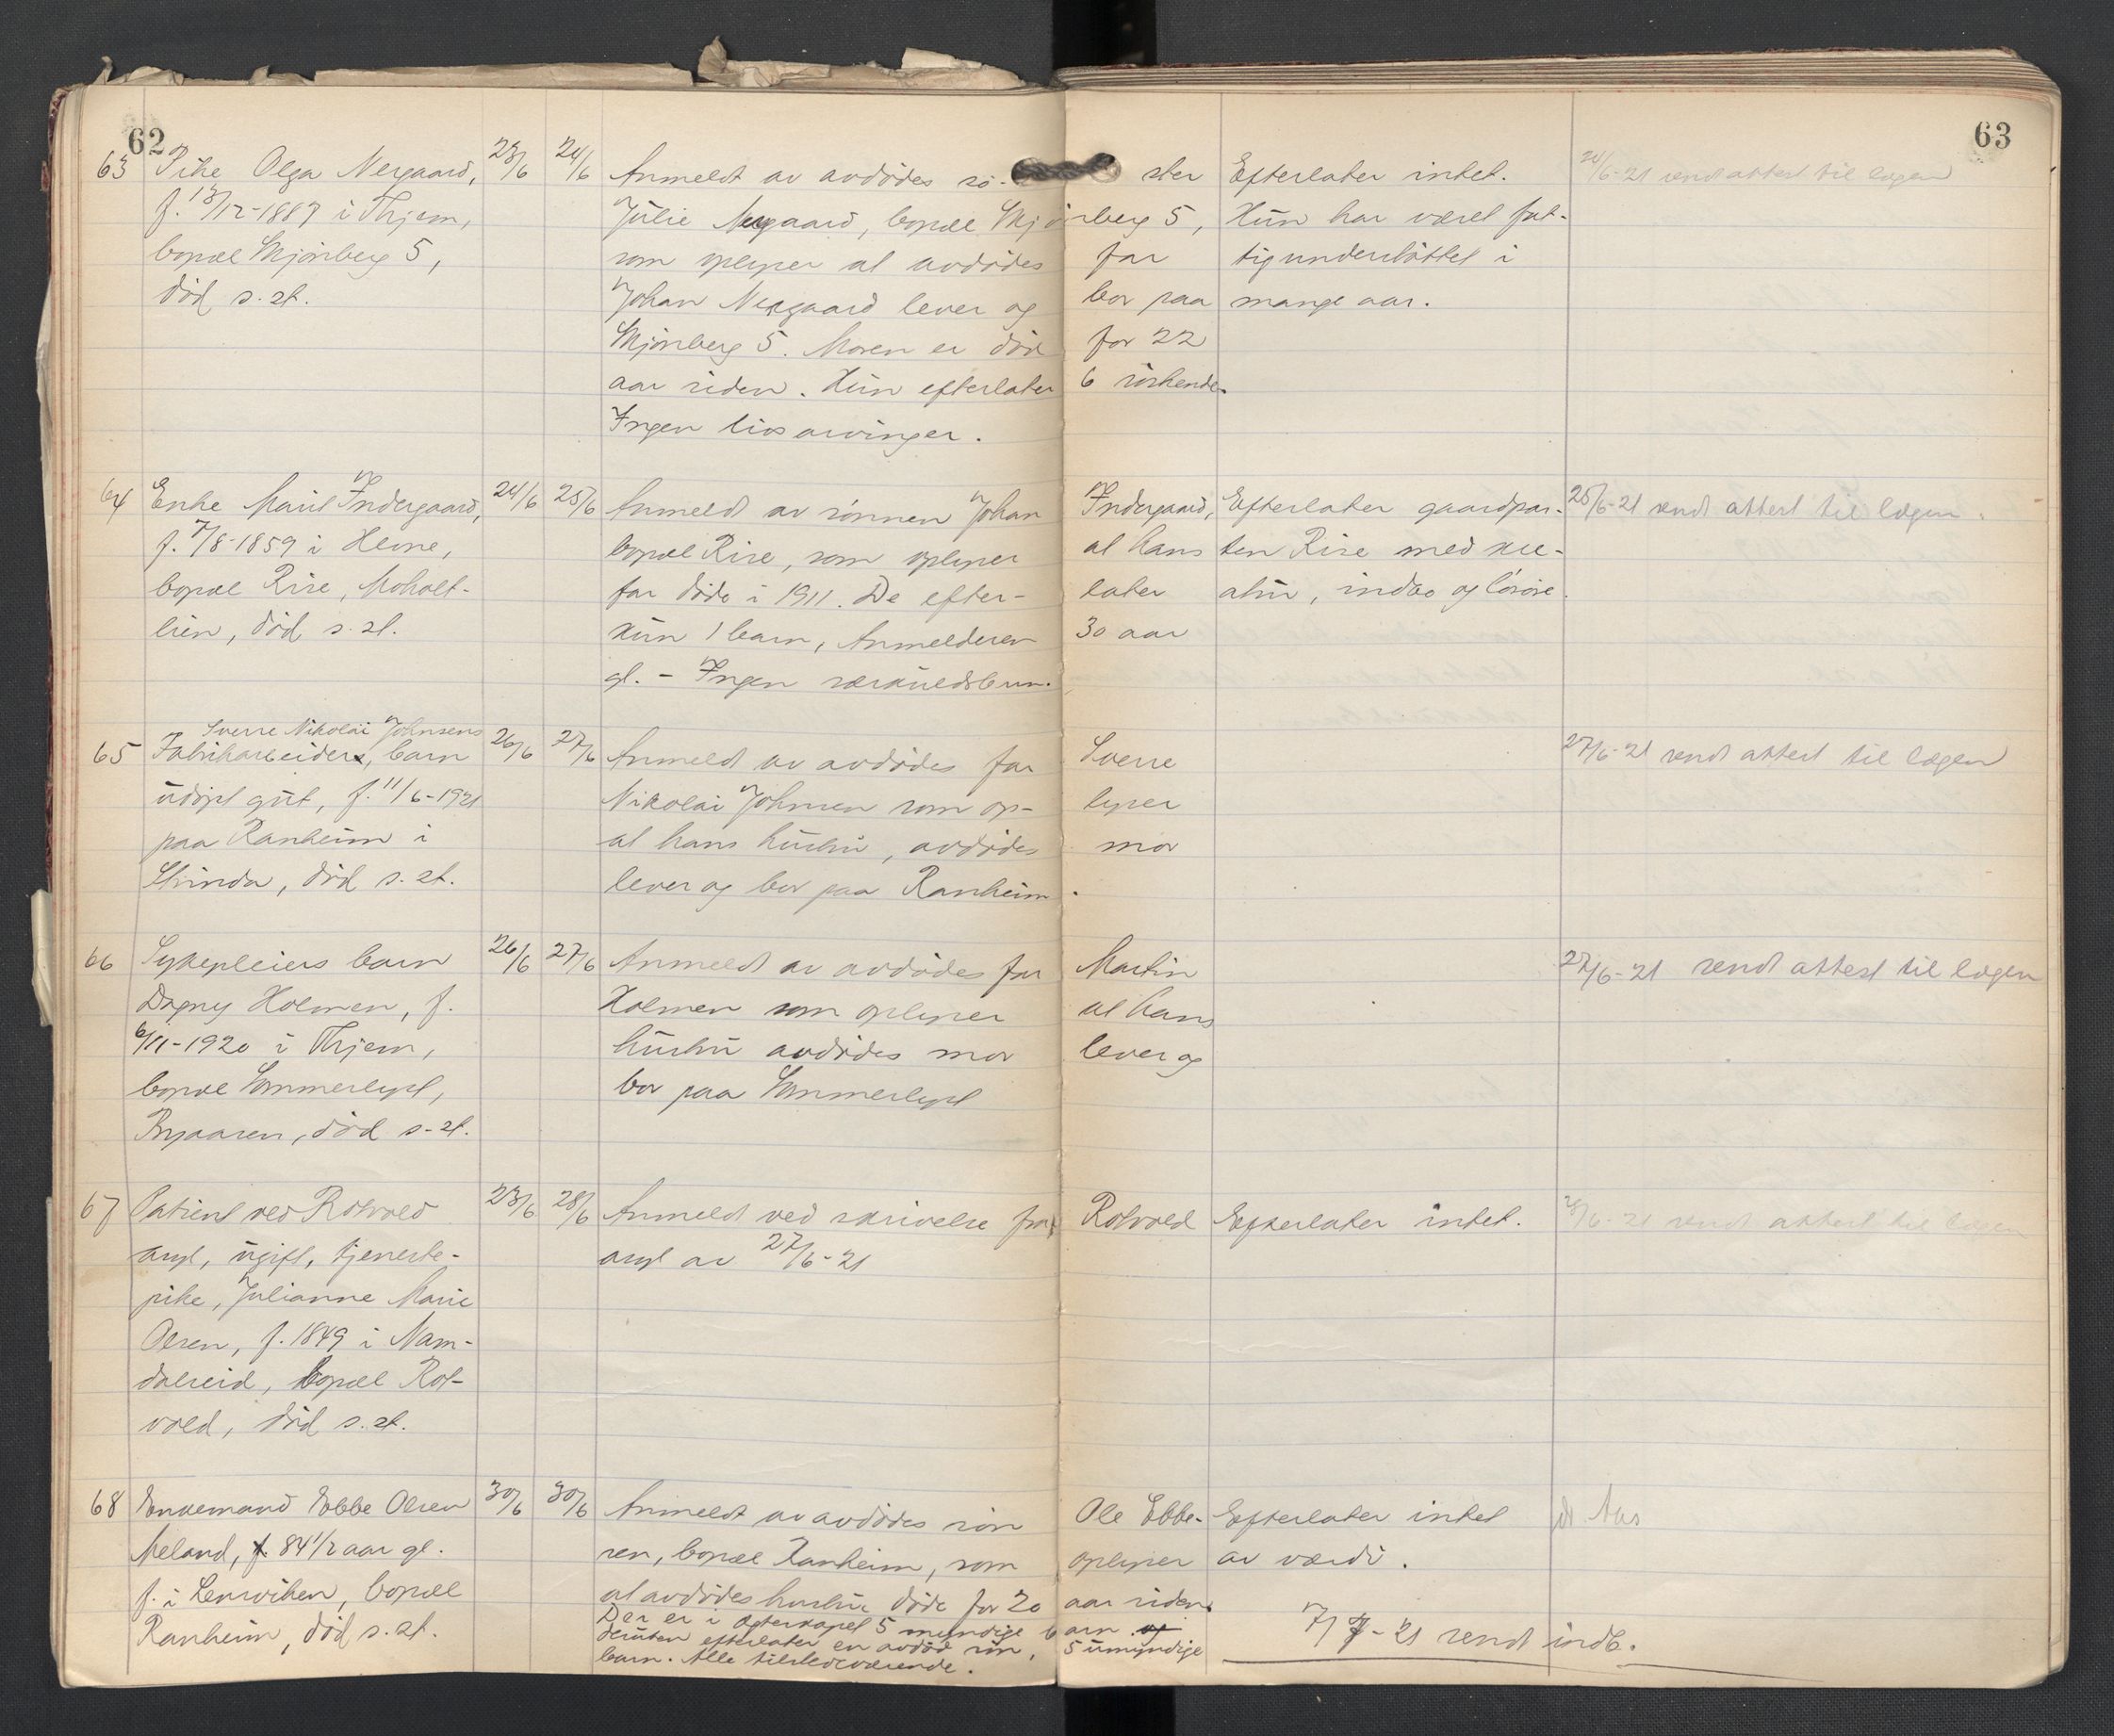 62
63
63 Pike Olga Nergaard, 23/6 24/6 Anmeldt av avdødes sø- ster Efterlater intet. 24/6-21 sendt attest til lægen
f. 13/12-1887 i Thjem, Julie Nergaard, bopæl Skjønberg 5, Hun har været fat-
bopæl Skjønberg 5, som oplyser at avdødes far tigunderstøttet i
død s. st. Johan Nergaard lever og bor paa mange aar.
Skjønberg 5. Moren er død for 22
aar siden. Hun efterlater 6 søskende.
Ingen livsarvinger.
64 Enke Marit Indergaard, 24/6 25/6 Anmeldt av sønnen Johan Indergaard, Efterlater gaardpar- 25/6-21 sendt attest til lægen.
f. 7/8-1859 i Hevne, bopæl Rise, som oplyser at hans ten Rise med kre-
bopæl Rise, Moholt- far døde i 1911. De efter- later atur, indbo og løsøre.
lien, død s. st. kun 1 barn, Anmelderen 30 aar
gl. - Ingen særkuldsbarn.
Sverre Nikolai Johnsens
65 Fabrikarbeider, barn 26/6 27/6 Anmeldt av avdødes far Sverre 27/6-21 sendt attest til lægen
udøpt gut, f. 11/6-1921 Nikolai Johnsen som op- lyser
paa Ranheim i at hans hustru, avdødes mor
Strinda, død s. st. lever og bor paa Ranheim.
66 Sykepleiers barn 26/6 27/6 Anmeldt av avdødes far Martin 27/6-21 sendt attest til lægen
Dagny Holmen, f. Holmen som oplyser at hans
6/11-1920 i Thjem, hustru avdødes mor lever og
bopæl Sommerlyst, bor paa Sommerlyst
Byaasen, død s. st.
67 Patient ved Rotvold 23/6 28/6 Anmeldt ved skrivelse fra Rotvold Efterlater intet. /6-21 sendt attest til lægen
asyl, ugift, tjeneste- asyl av 27/6-21
pike, Julianne Marie
Olsen, f. 1849 i Nam-
dalseid, bopæl Rot-
vold, død s. st.
68 Enkemand Ebbe Olsen 30/6 30/6 Anmeldt av avdødes søn Ole Ebbe- Efterlater intet
Meland, 84 1/2 aar gl. sen, bopæl Ranheim, som oplyser av værdi.
f. i Lensviken, bopæl at avdødes hustru døde for 20 aar siden.
Ranheim, død s. st. Der er i egteskapet 5 myndige barn 7/7-21 sendt indb.
desuten efterlater en avdød søn, 5 umyndige
barn. Alle tilstedeværende.